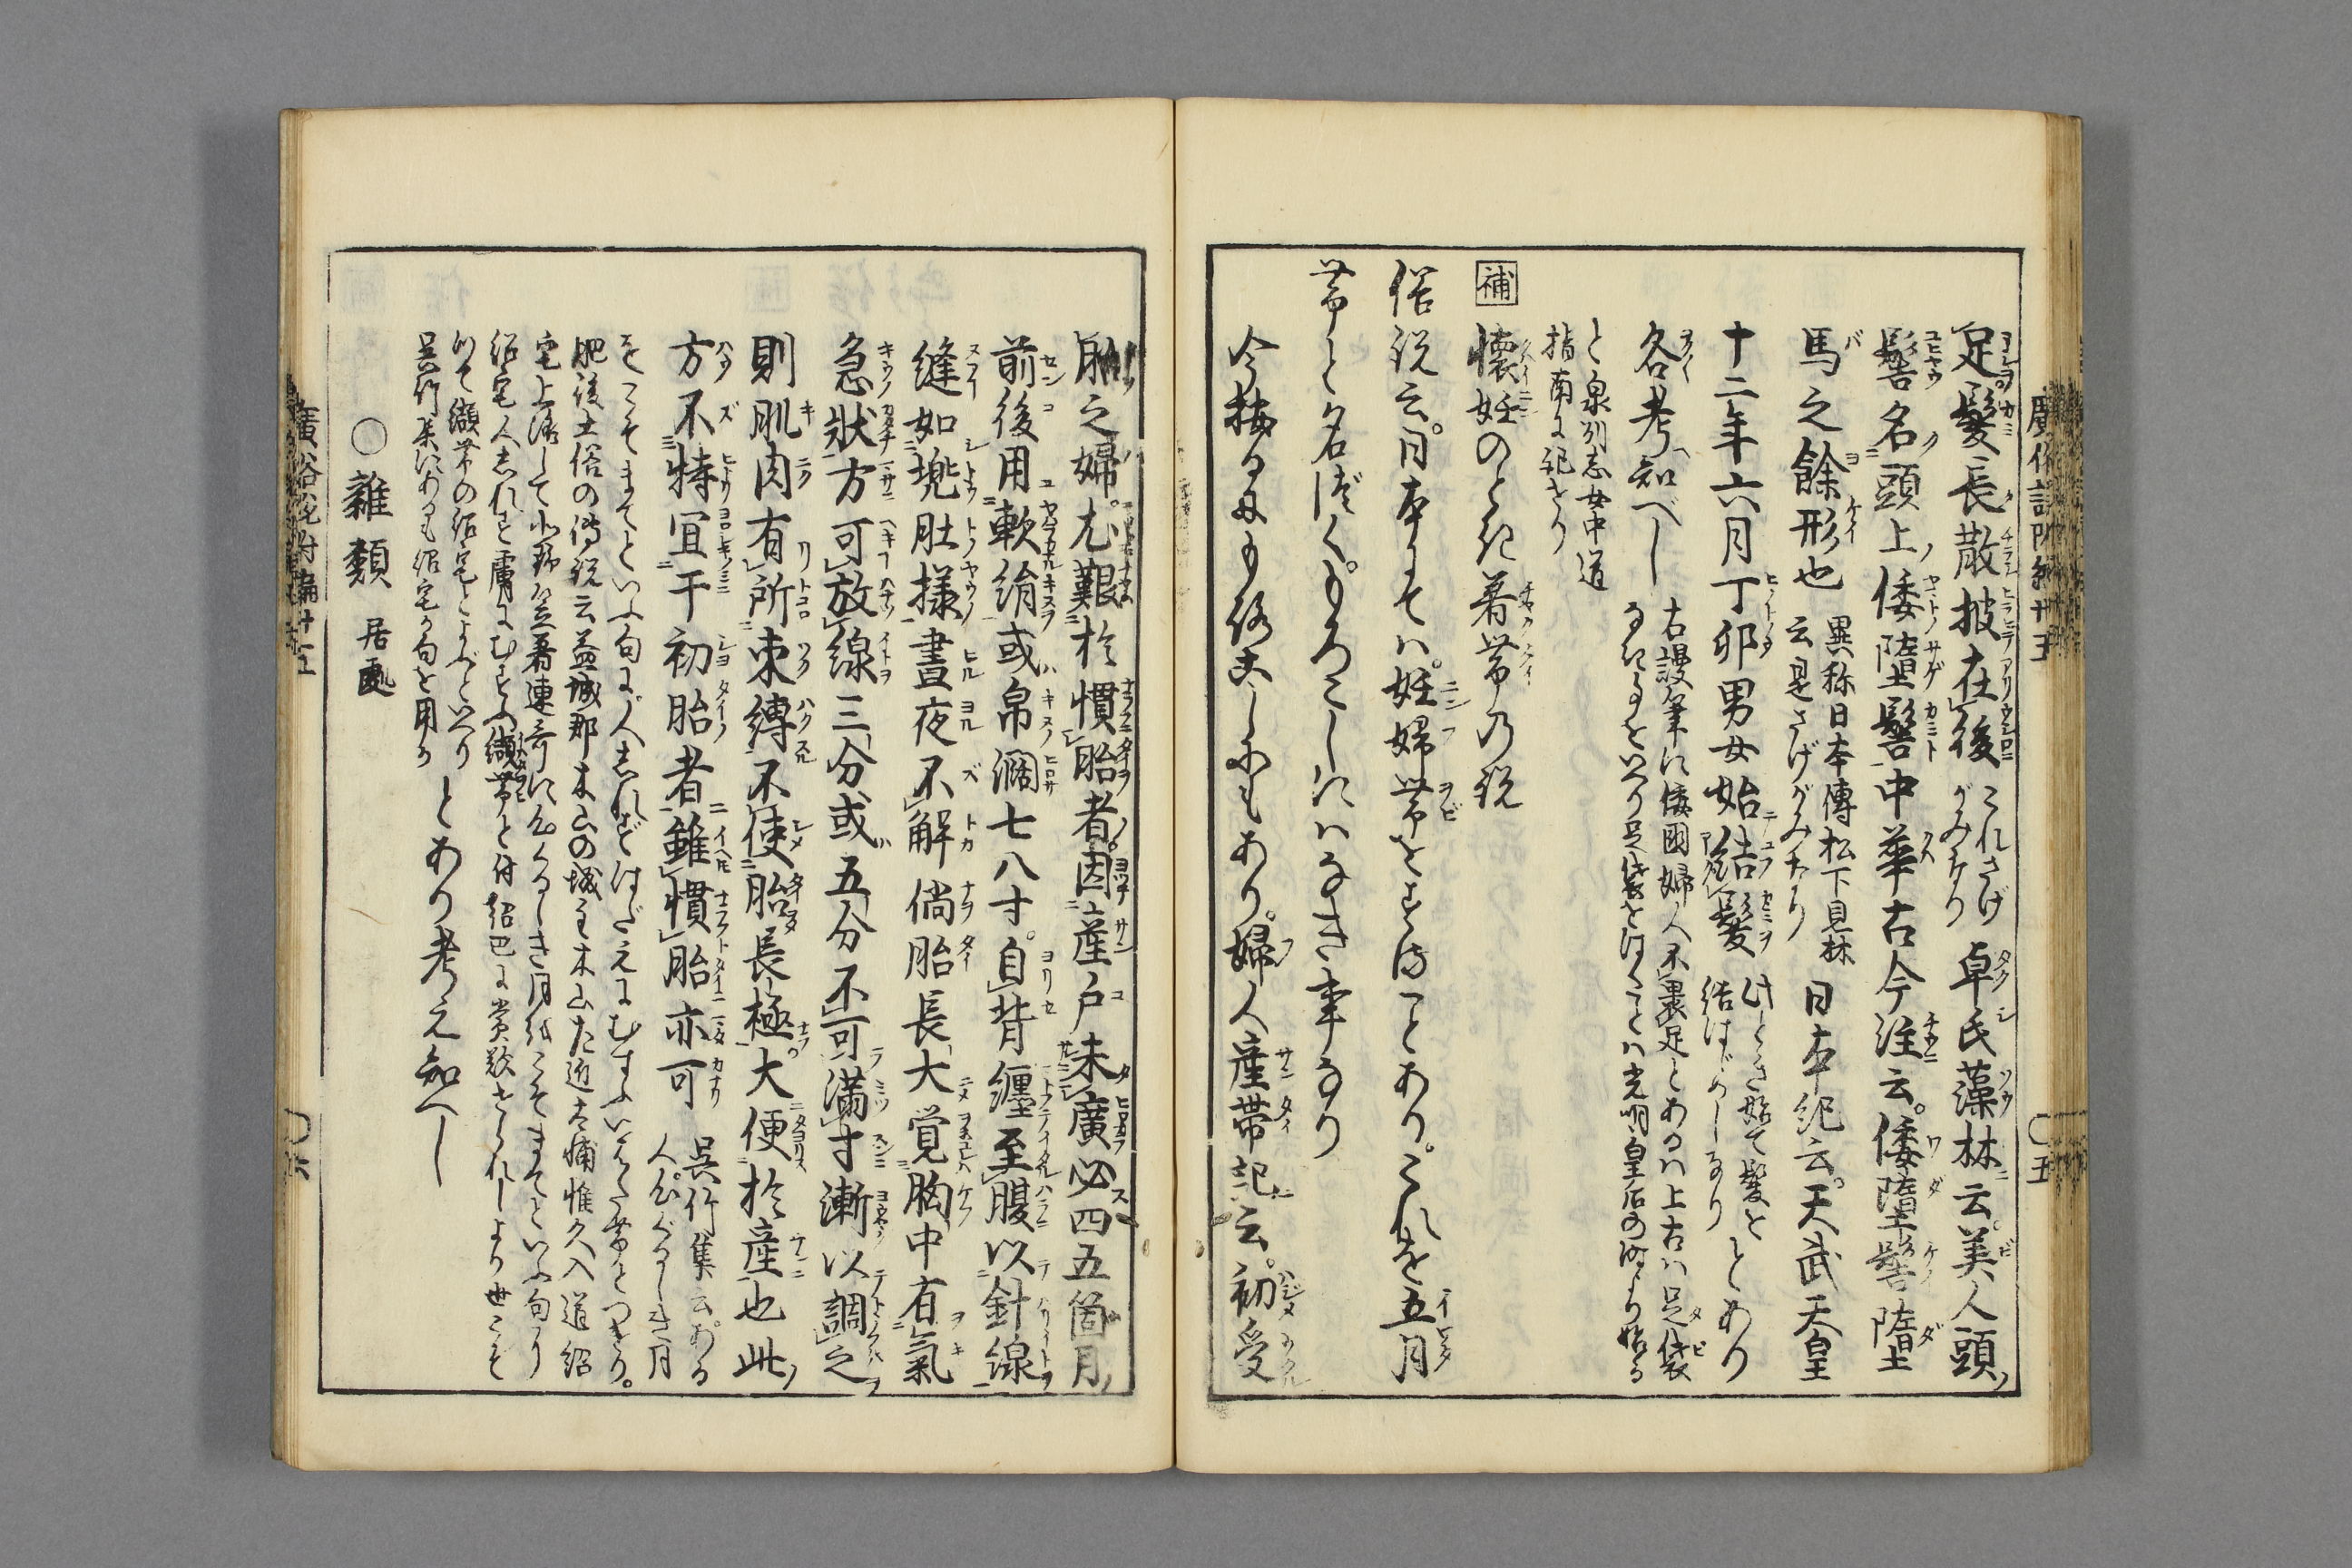 足髪長散披在後 これさげがみなり 卓氏藻林云。美人頭
髻名頭上倭墮髻中華古今注云。倭墮髻墮
馬之餘形也 異称日本傳松下見林云是さげがみなり 日本紀云。天武天皇
十二年六月丁卯男女始結髮 此とき始て髪を結はじめしなり とあり
各考知べし 右謾筆に倭國婦人不裹足とあるハ上古ハ足袋なきゆゑをいへり足袋をはくことハ光明皇后の時より始る
と泉列志女中道指南に記せり
補 懐妊のとき着帯の説
俗説云。日本にてハ。妊婦帯をする事あり。これを五月
帯と名づく。もろこしにハなき事なり
今按るに
あり。婦人産帯記云。初受
胎之婦。尤艱於慣胎者。因産戸未廣必四五箇月
前後用軟絹或帛濶七八寸。自背纏至腹以針線
縫如兠肚様晝夜不解倘胎長大覚胸中有氣
急狀方可放線三分或五分不可満寸漸以調之
則肌肉有所束縛不使胎長極大便於産也此
方不特宜于初胎者雖慣胎亦可 呉竹集云。
をこそまてといふ句に人しれずはだえにむすふいはた帯とつけり。
肥後土俗の傳説云益城郡木山の城主木山左近大輔惟久入道紹
宅上洛して連哥に
月をこそまてといふ句
紹宅人しれず膚にむすふ纈帯と付紹巴に賞歎せられしより世こぞ
りて纈帯の紹宅とよぶといへり
呉竹集にあるも紹宅が句を用る とあり考え知べし
○雜類 居處